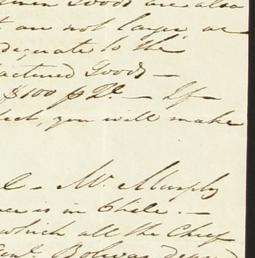 Goods are also
are not large, or
adequate to the
factured Goods —
$100 p — If
you will make
Mr. Murphy
is in Chile. —
which all the Chief
Genl. Bolivar